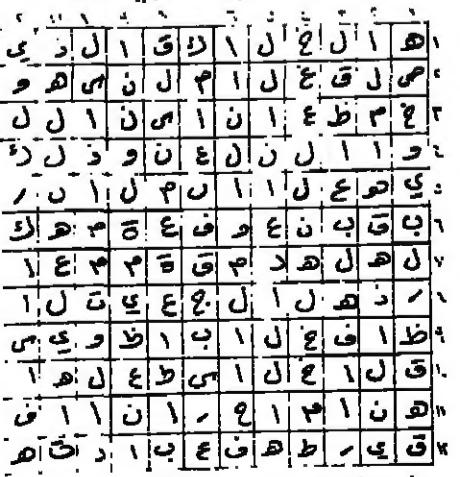 ١ ه ا ل خ ل ا ك ق ا ل ذ ي
٢ ص ل ق غ ل ا م ل ن س ه و
٣ خ م ط ع ا ن ا س ن ا ل ل
٤ و ا ا ل ن ل ع ن و ذ ل ك
٥ ي و ع ل ا ا ن م ل ا ن ر
٦ ب ق ب ن ع و ف ع ة م ه ك
٧ ل ه ل ه د م ق ة م م ع ا
٨ ر ذ ه ل ا ل ج ع ي ت ل ا
٩ ظ ا ف خ ل ا ب ا ظ و ي س
١٠ ق ل ا ح ل ا س ط ع ل ه ا
١١ ه ن ا م ا ح ر ا ن ا ا ف
١٢ ق ي ر ط ه ف ع ب ا د ق ه